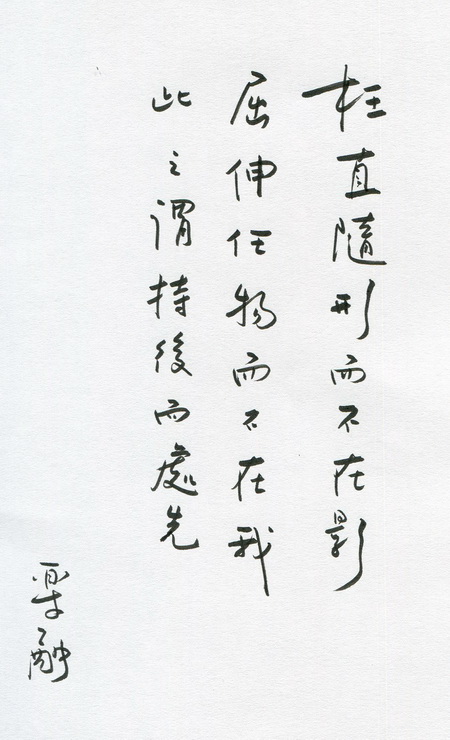 枉直隨形而不在影
屈伸任物而不在我
此之謂持後而處先
融